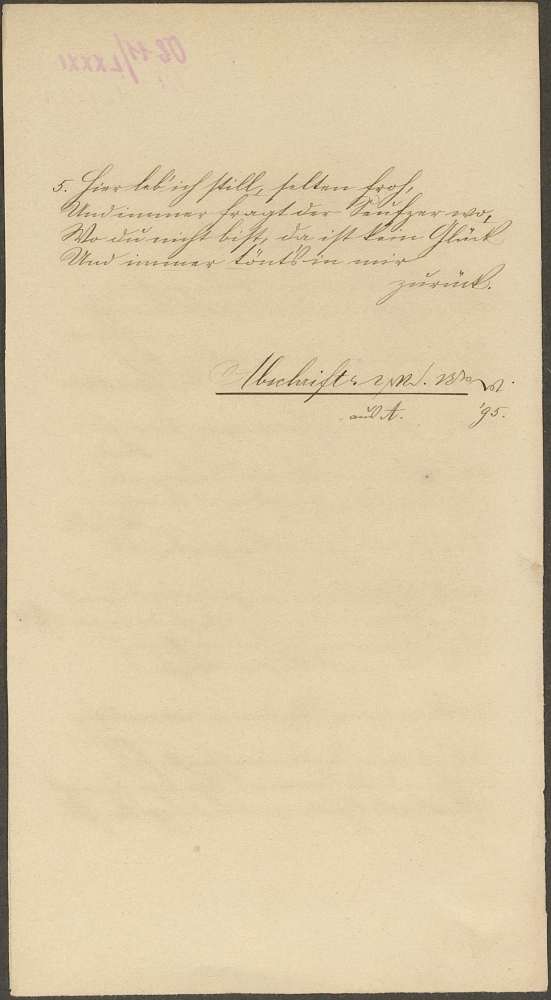 5. Hier leb' ich still, selten froh,
Und immer fragt der Seufzer wo,
Wo du nicht bist, da ist kein Glück
Und immer tönt's in mir
zurück.
Abschrift
aus A. '95.